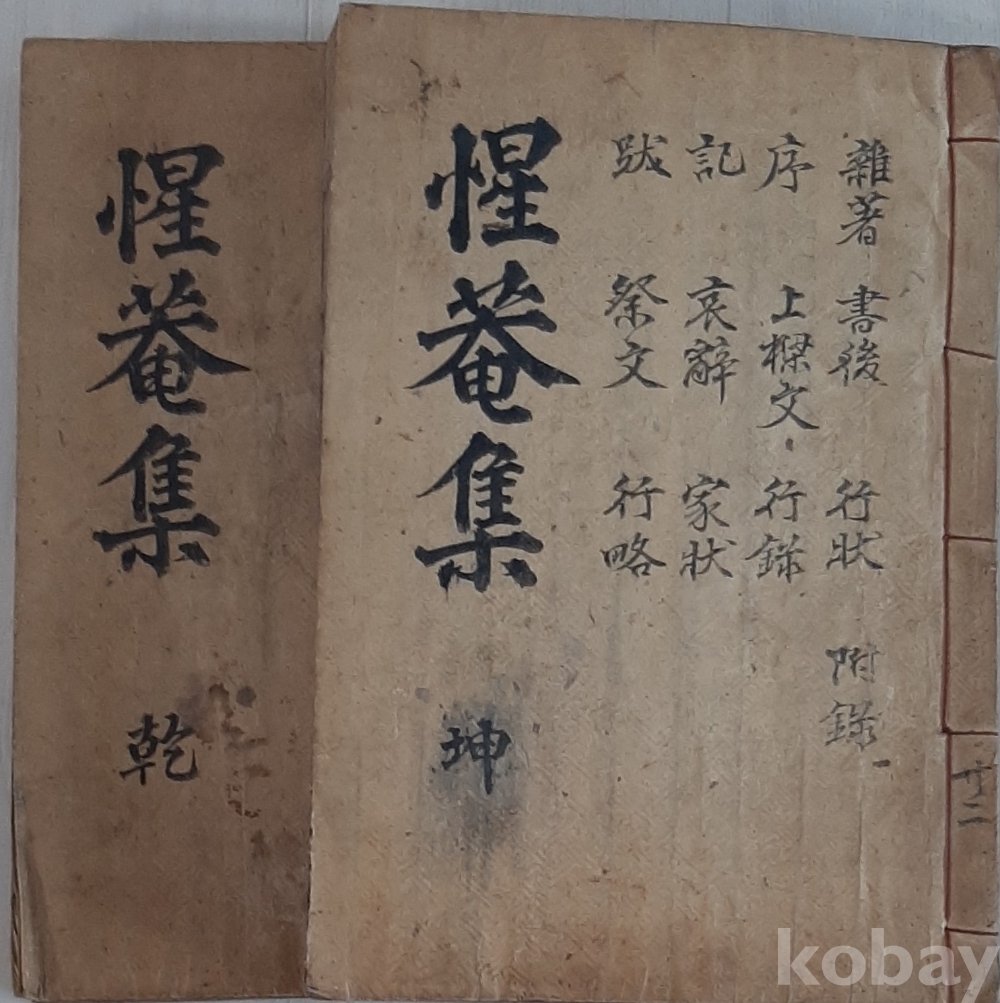 惺菴集
乾
惺菴集
坤
雜著 書後 行狀 附錄
序 上樑文 行錄
記 哀辭 家狀
跋 祭文 行略
共二
kobay